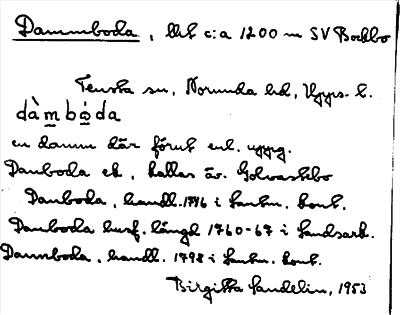 Dammboda, lht c:a 1200 m SV Bockbo
Tensta sn, Norunda hd, Upps. l.
dàmbọda
en damm där förut enl. uppg.
Danboda ek, kallas äv. Golvastbo
Danboda, handl. 1796 i Lantm. kont.
Danboda husf. längd 1760-67 i Landsark.
Dammboda, handl. 1798 i Lantm. kont.
Birgitta Sandelin, 1953